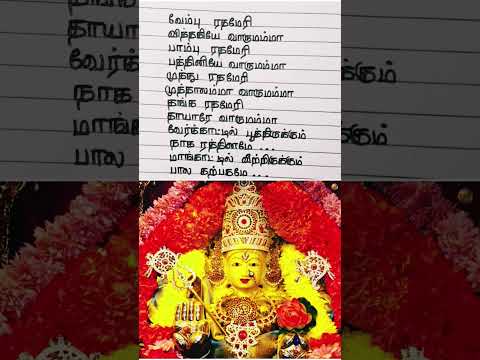 வேம்பு ரதமேரி
வித்தகியே வாருமம்மா
பாம்பு ரதமேரி
பத்தினியே வாருமம்மா
முத்து ரதமேரி
முத்தாலம்மா வாருமம்மா
தங்க ரதமேரி
தாயாரே வாருமம்மா
வேர்க்காட்டில் பூத்திருக்கும்
நாக ரத்தினமே ...
மாங்காட்டில் வீற்றிருக்கும்
பால கற்பகமே ...